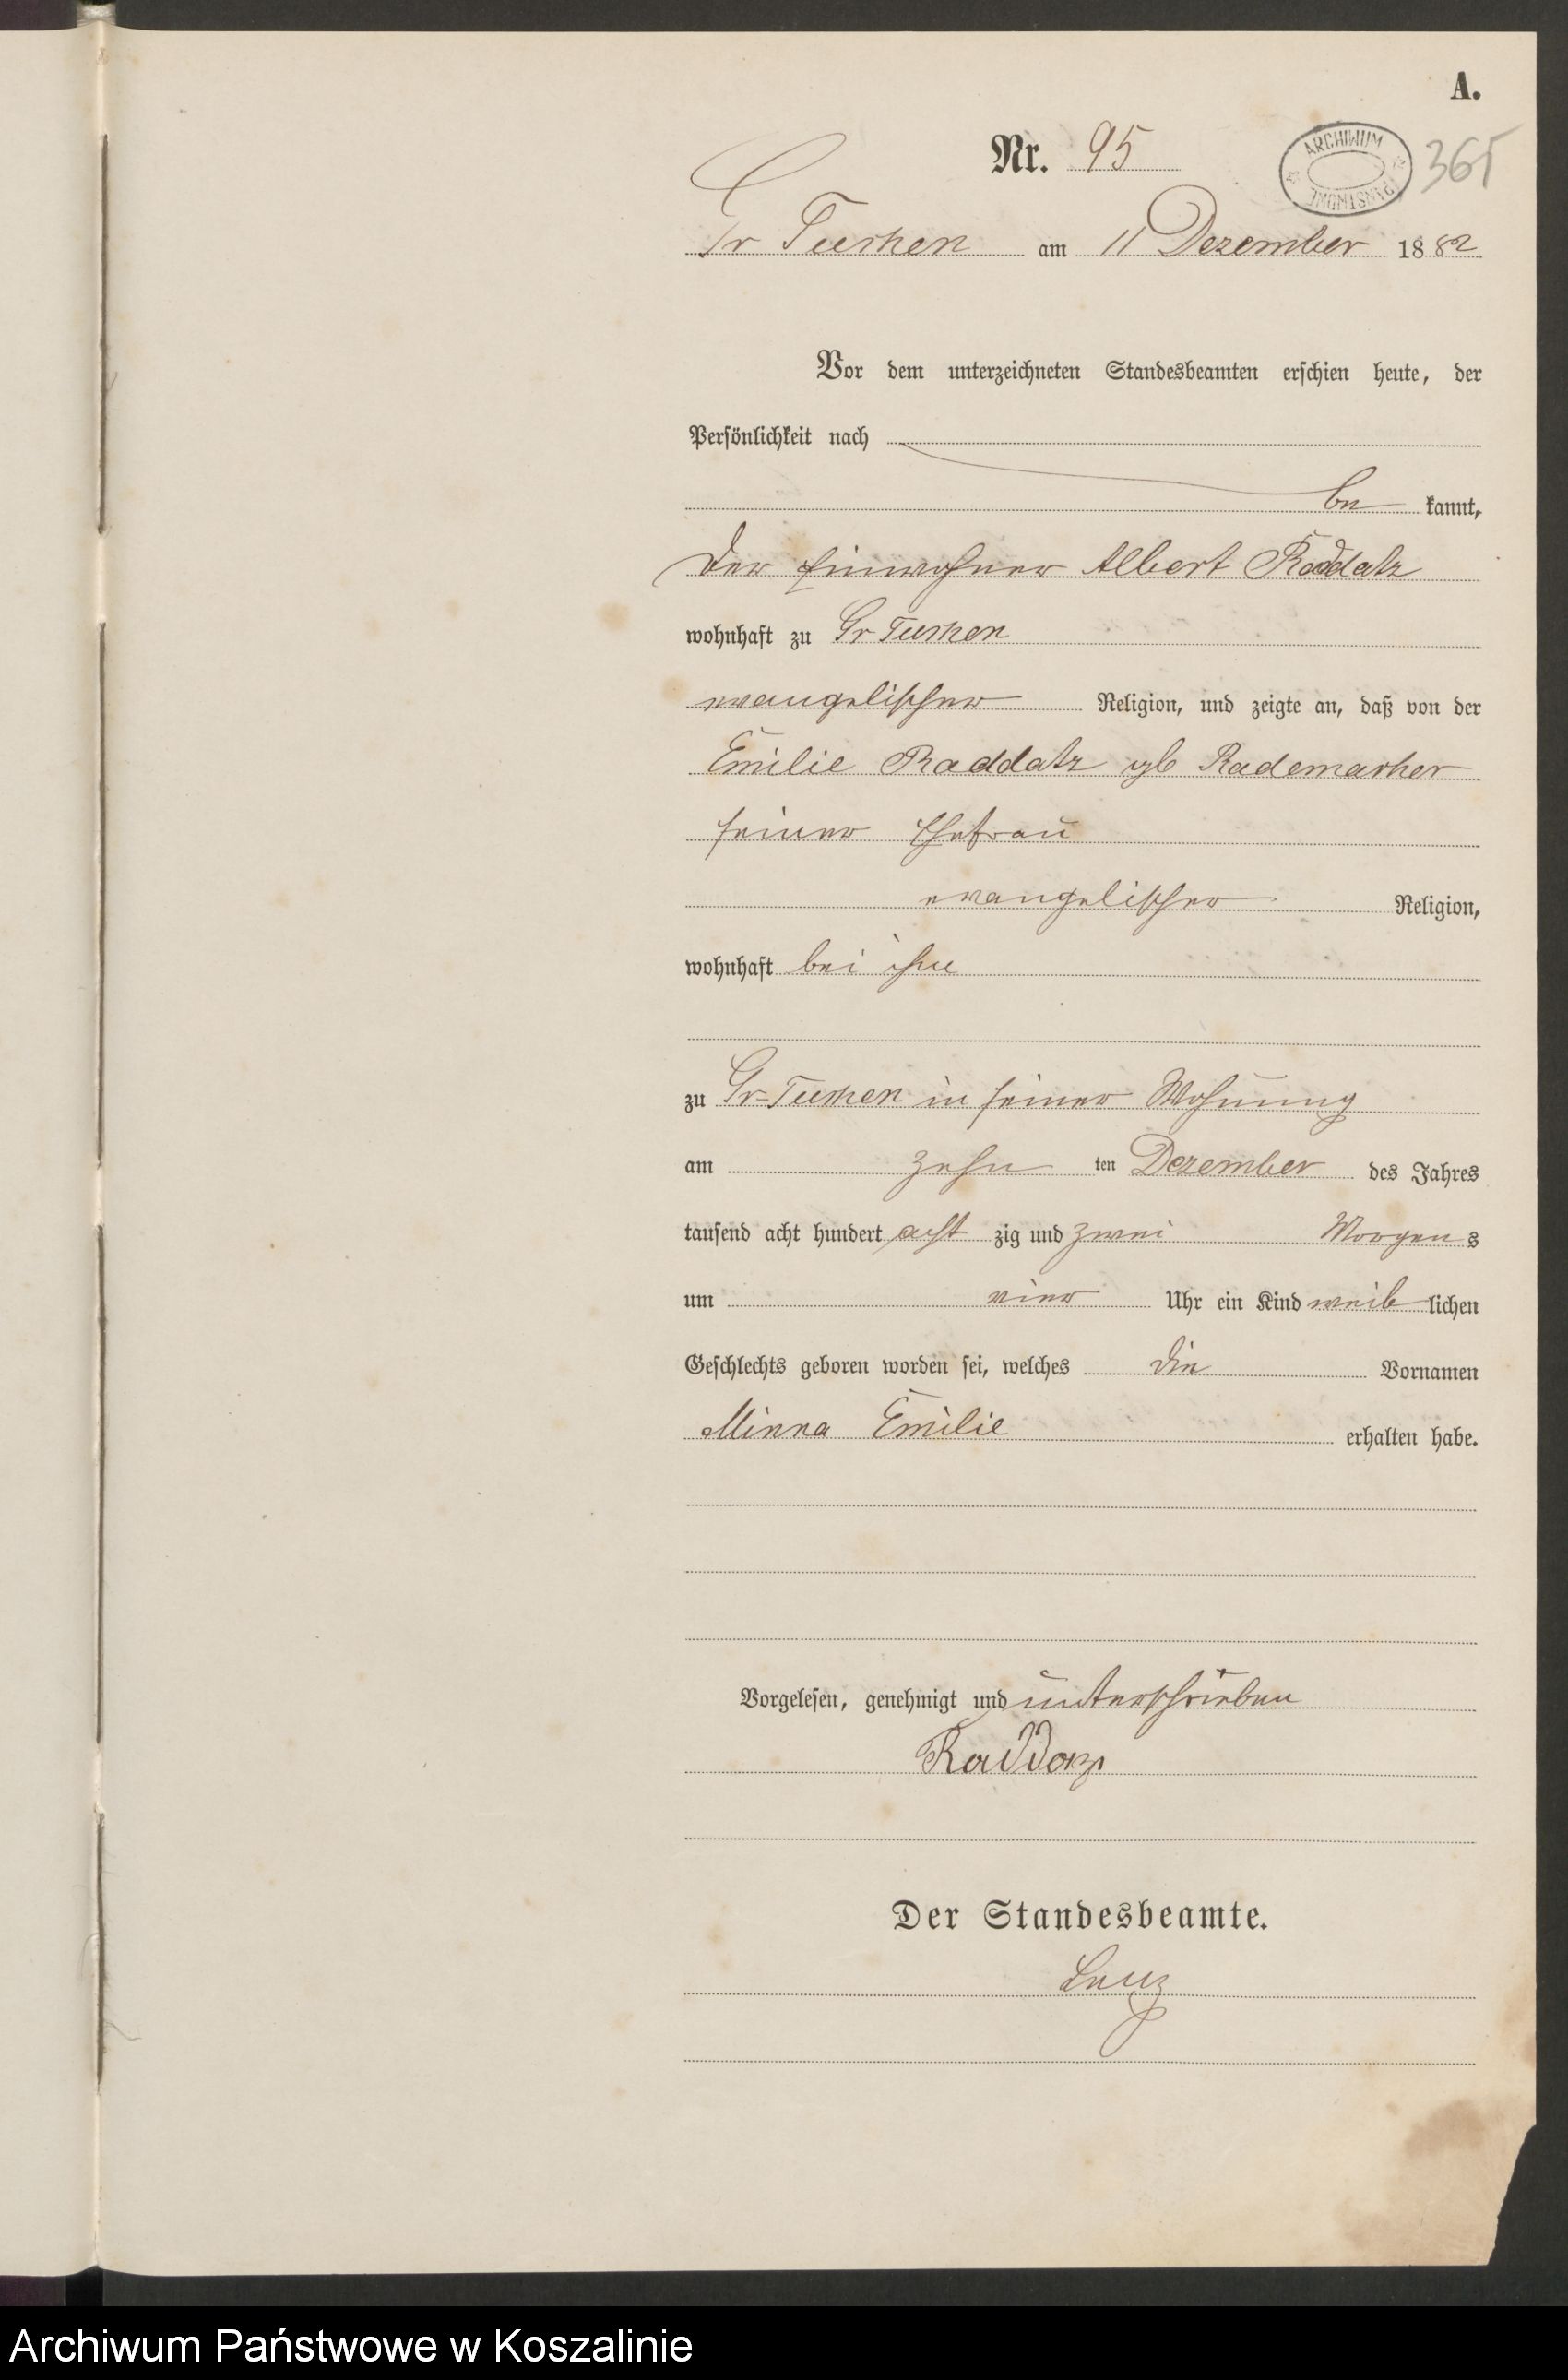 A.
Nr. 95
ARCHIWUM
PAŃSTWOWE
365
Gr Tuchen am 11 Dezember 1882
Vor dem unterzeichneten Standesbeamten erschien heute, der
Persönlichkeit nach
be kannt,
der Einwohner Albert Raddatz
wohnhaft zu Gr Tuchen
evangelischer Religion, und zeigte an, daß von der
Emilie Raddatz geb Rademacher
seiner Ehefrau
evangelischer Religion,
wohnhaft bei ihm
zu Gr-Tuchen in seiner Wohnung
am zehn ten Dezember des Jahres
tausend acht hundert acht zig und zwei Morgens
um vier Uhr ein Kind weiblichen
Geschlechts geboren worden sei, welches die Vornamen
Minna Emilie erhalten habe.
Vorgelesen, genehmigt und unterschrieben
Raddaz
Der Standesbeamte.
Lenz
Archiwum Państwowe w Koszalinie